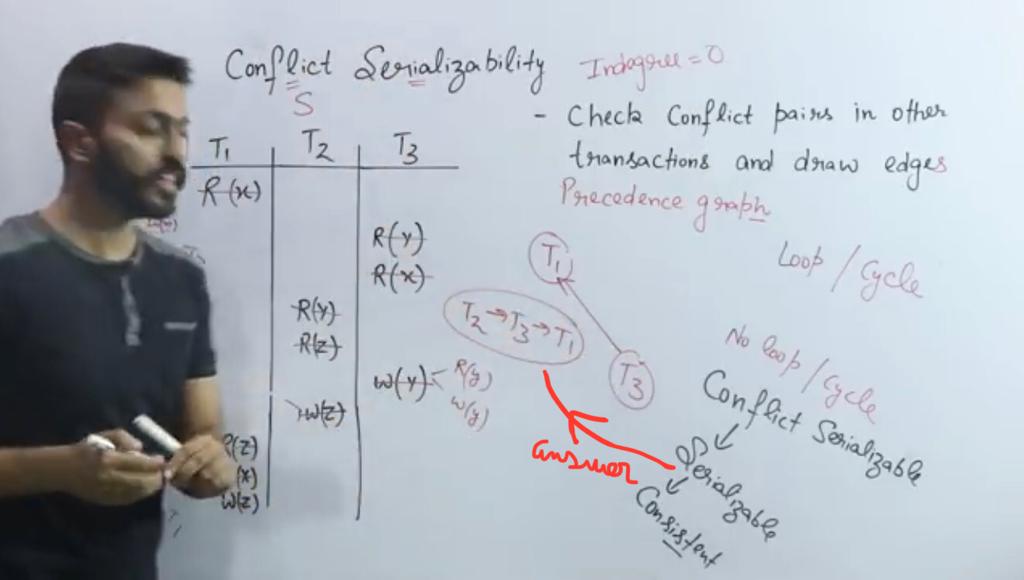 Conflict Serializability
Indegree = 0
S
- Check Conflict pairs in other
transactions and draw edges
Precedence graph
T1 T2 T3
R(x)
R(y)
R(x)
R(y)
R(z)
W(y)
R(y)
W(y)
W(z)
R(z)
(x)
W(z)
T1
T2 → T3 → T1
T3
Loop / Cycle
No loop / Cycle
Conflict Serializable
Serializable
Consistent
answer